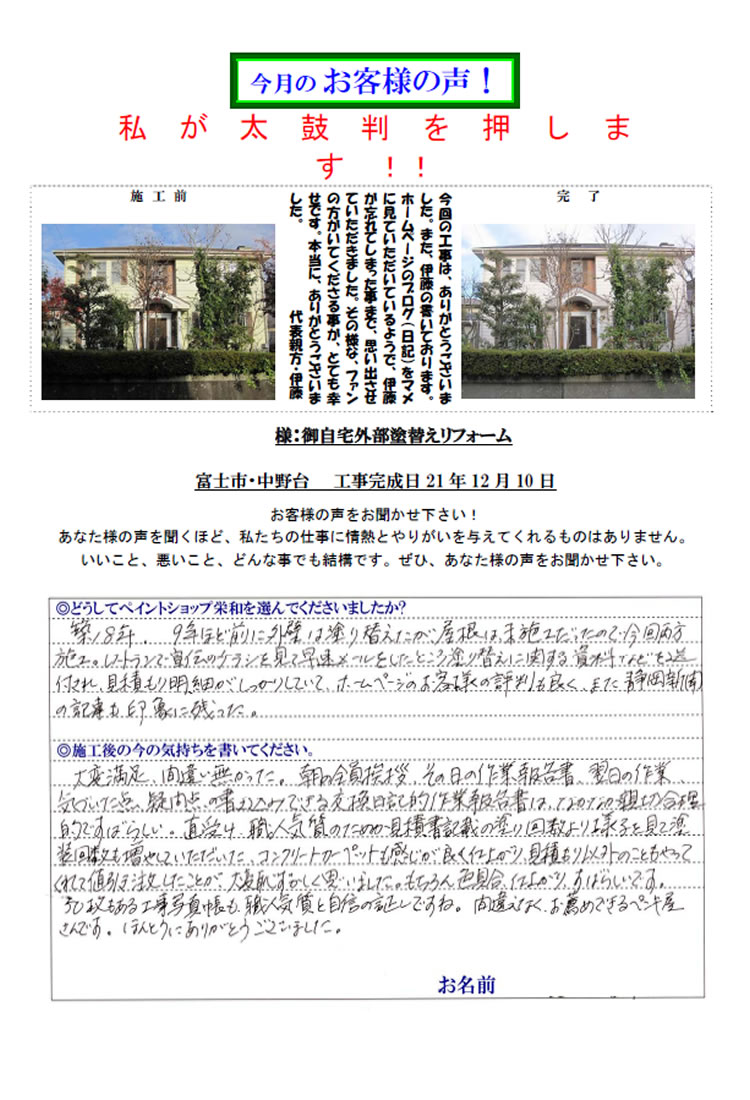 今月の お客様の声！
私が太鼓判を押しま
す！！
施工前
今回の工事は、ありがとうございま
した。また、伊藤の書いております。
ホームページのブログ（日記）をマメ
に見ていただいているようで、伊藤
が忘れてしまった事まで、思い出させ
ていただきました。その様な、ファン
の方がいてくださる事が、とても幸
せです。本当に、ありがとうございま
した。
代表親方・伊藤
完了
様：御自宅外部塗替えリフォーム
富士市・中野台 工事完成日21年12月10日
お客様の声をお聞かせ下さい！
あなた様の声を聞くほど、私たちの仕事に情熱とやりがいを与えてくれるものはありません。
いいこと、悪いこと、どんな事でも結構です。ぜひ、あなた様の声をお聞かせ下さい。
◎どうしてペイントショップ栄和を選んでくださいましたか？
築18年、9年ほど前に外壁は塗り替えたが屋根は未施工だったので今回両方
施工。レストランで宣伝のチラシを見て早速メールをしたところ塗り替えに関する資料などを送
付され、見積もり明細がしっかりしていて、ホームページのお客様の評判も良く、また静岡新聞
の記事も印象に残った。
◎施工後の今の気持ちを書いてください。
大変満足、間違い無かった。朝の全員挨拶、その日の作業報告書、翌日の作業、
気づいた点、疑問点の書き込めできる交換日記的作業報告書は、なかなか親切合理
的ですばらしい。直受け、職人気質のためか見積書記載の塗り回数より様子を見て塗
装回数も増やしていただいた、コンクリートカーペットも感じが良く仕上がり、見積もり以外のこともやって
くれて値引き注文したことが、大変恥ずかしく思いました。もちろん色具合、仕上がり、すばらしいです。
枚もある工事写真帳も、職人気質と自信の証しですね。間違えなくお薦めできるペンキ屋
さんです。ほんとうにありがとうございました。
お名前